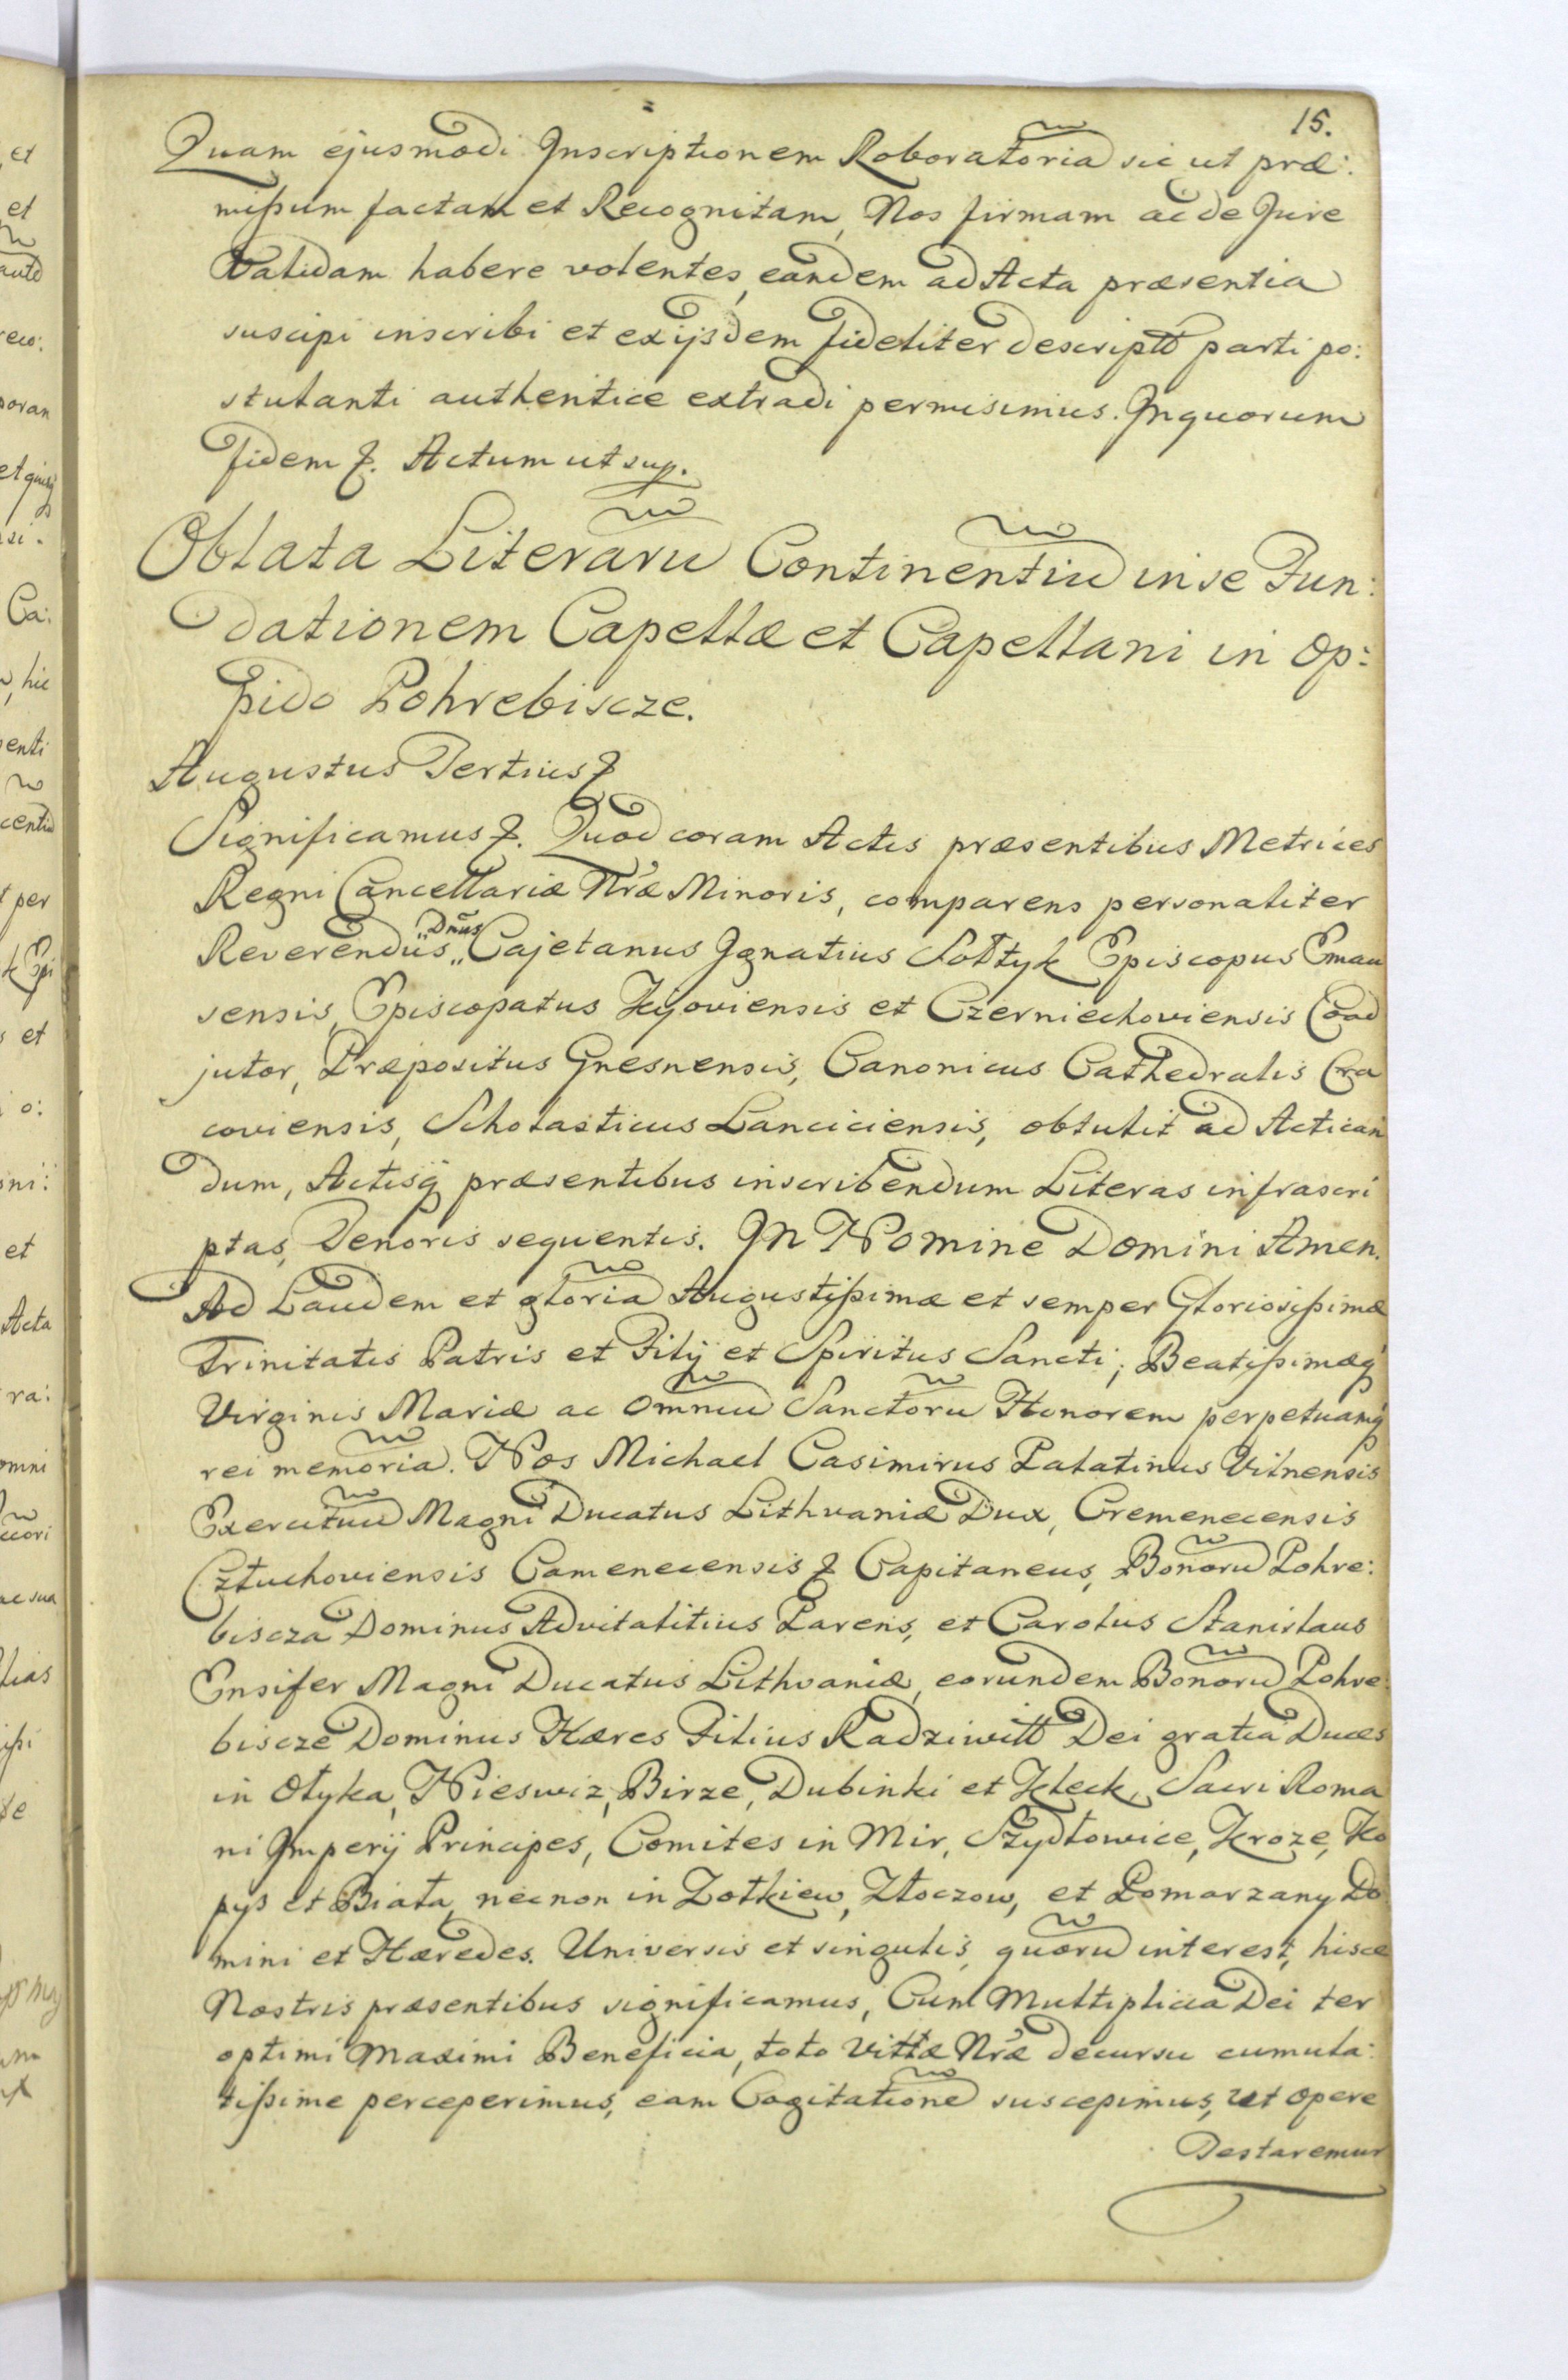 15.
Quam ejusmodi Inscriptionem Roboratoria͠ sic ut præ:
mißum factam et Recognitam, Nos firmam ac de Jure
Validam habere volentes, eandem ad Acta præsentia
suscipi inscribi et ex ijsdem fideliter descriptā parti po:
stulanti authentice extradi permisimus. In quorum
Fidem &. Actum ut sup.
Oblata Literaru͠ Continentiu͠ in se Fun:
dationem Capellæ et Capellani in Op:
pido Pohrebiscze.
Augustus Tertius &
Significamus &. Quod coram Actis præsentibus Metrices
Regni Cancellariæ Nr̃æ Minoris, comparens personaliter
Reverendus „Dn̄us„ Cajetanus Ignatius Sołtyk Episcopus Emau
sensis, Episcopatus Kijoviensis et Czerniechoviensis Coad
jutor, Præpositus Gnesnensis, Canonicus Cathedralis Cra
coviensis, Scholasticus Lanciciensis, obtulit ad Actican
dum, Actisq̃ præsentibus inscribendum Literas infrascri
ptas, Tenoris sequentis. In Nomine Domini Amen.
Ad Laudem et gloria͠ Augustißimæ et semper Gloriosißimæ
Trinitatis Patris et Filij et Spiritus Sancti; Beatißimæq̃
Virginis Mariæ ac Omniu͠ Sanctoru͠ Honorem perpetuamq̃
rei memoria͠. Nos Michael Casimirus Palatinus Vilnensis
Exercituu͠ Magni Ducatus Lithvaniæ Dux, Cremenecensis
Cztuchoviensis Camenecensis & Capitaneus, Bonoru͠ Pohre:
biscza Dominus Advitalitius Parens, et Carolus Stanislaus
Ensifer Magni Ducatus Lithvaniæ, eorundem Bonoru͠ Pohre:
biscze Dominus Hæres Filius Radziwiłł Dei gratia Duces
in Ołyka, Nieswiz, Birze, Dubinki et Kleck, Sacri Roma
ni Imperij Principes, Comites in Mir, Szydłowice, Kroze, Ko
pys et Biała, necnon in Zołkiew, Złoczow, et Pomarzany Do
mini et Hæredes. Universis et singulis, quoru͠ interest, hisce
Nostris præsentibus significamus, Cum Multiplicia Dei ter
optimi Maximi Beneficia, toto Vittæ Nr̃æ decursu cumula:
tißime perceperimus, eam Cogitatione͠ suscepimus, ut opere
Testaremur